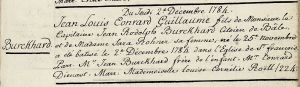 Du Jeudi 2e Decembre 1784.
Jean Louis Conrard Guillaume fils de Monsieur le
Capitaine Jean Rodolph Burckhard Citoien de Bâle
Burckhard. et de Madame Sara Rohner sa femme, né le 26e Novembre
a été batisé le 2e Decembre 1784 dans l'Eglise de St. françois
Par Mr. Jean Burckhard frere de l'enfant. Mr. Conrard
Dienast. Marr. Mademoiselle Louise Cornelie Roell (224.